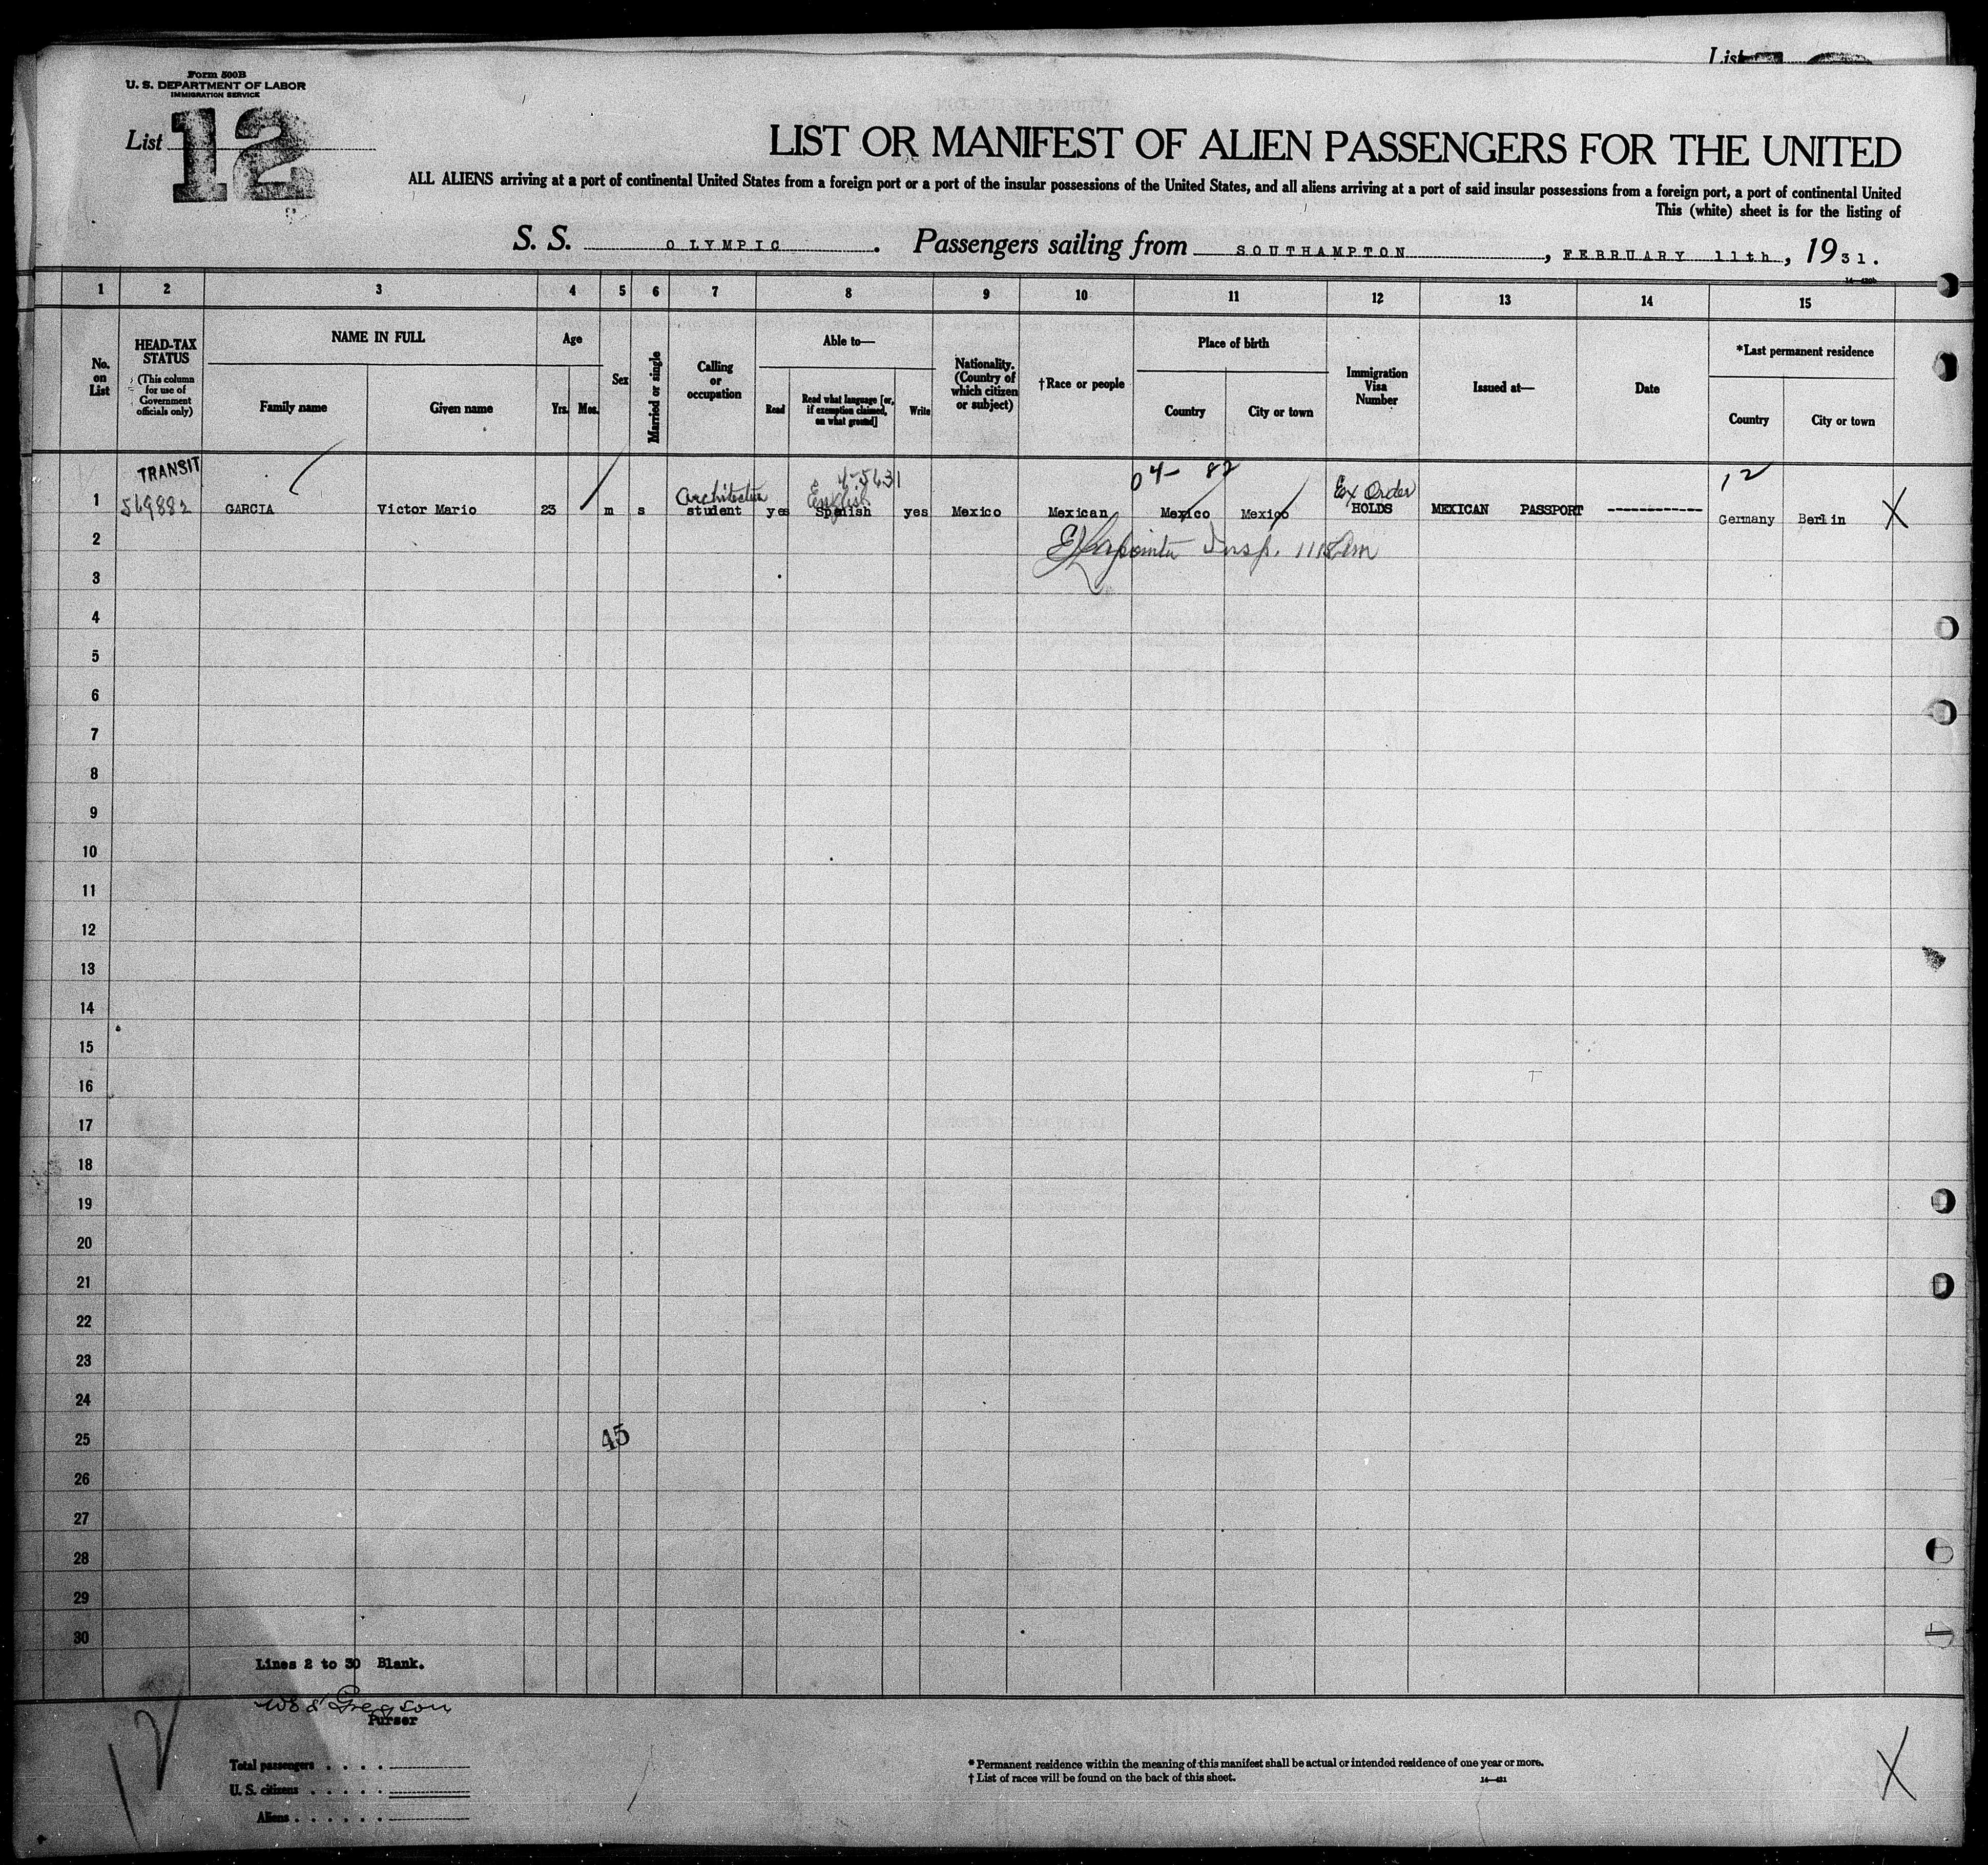 Form 500B
U. S. DEPARTMENT OF LABOR
IMMIGRATION SERVICE
List 12
List
LIST OR MANIFEST OF ALIEN PASSENGERS FOR THE UNITED
ALL ALIENS arriving at a port of continental United States from a foreign port or a port of the insular possessions of the United States, and all aliens arriving at a port of said insular possessions from a foreign port, a port of continental United
This (white) sheet is for the listing of
S. S. OLYMPIC. Passengers sailing from SOUTHAMPTON, FEBRUARY 11th, 1931.
1 2 3 4 5 6 7 8 9 10 11 12 13 14 15
No. on List
HEAD-TAX STATUS
(This column for use of Government officials only)
NAME IN FULL
Family name
Given name
Age
Yrs. Mos.
Sex
Married or single
Calling or occupation
Able to—
Read
Read what language [or, if exemption claimed, on what ground]
Write
Nationality. (Country of which citizen or subject)
†Race or people
Place of birth
Country
City or town
Immigration Visa Number
Issued at—
Date
*Last permanent residence
Country
City or town
TRANSIT 4-5631 04- 82 12
Architecture English Ex Order
1 569882 GARCIA Victor Mario 23 m s student yes Spanish yes Mexico Mexican Mexico Mexico HOLDS MEXICAN PASSPORT ------------- Germany Berlin X
2 Insp.
3
4
5
6
7
8
9
10
11
12
13
14
15
16
17
18
19
20
21
22
23
24
25 45
26
27
28
29
30
Lines 2 to 30 Blank.
Gregson
Purser
12
Total passengers . . . .
U. S. citizens . . . . .
Aliens . . . . . .
* Permanent residence within the meaning of this manifest shall be actual or intended residence of one year or more.
† List of races will be found on the back of this sheet.
14—431
X